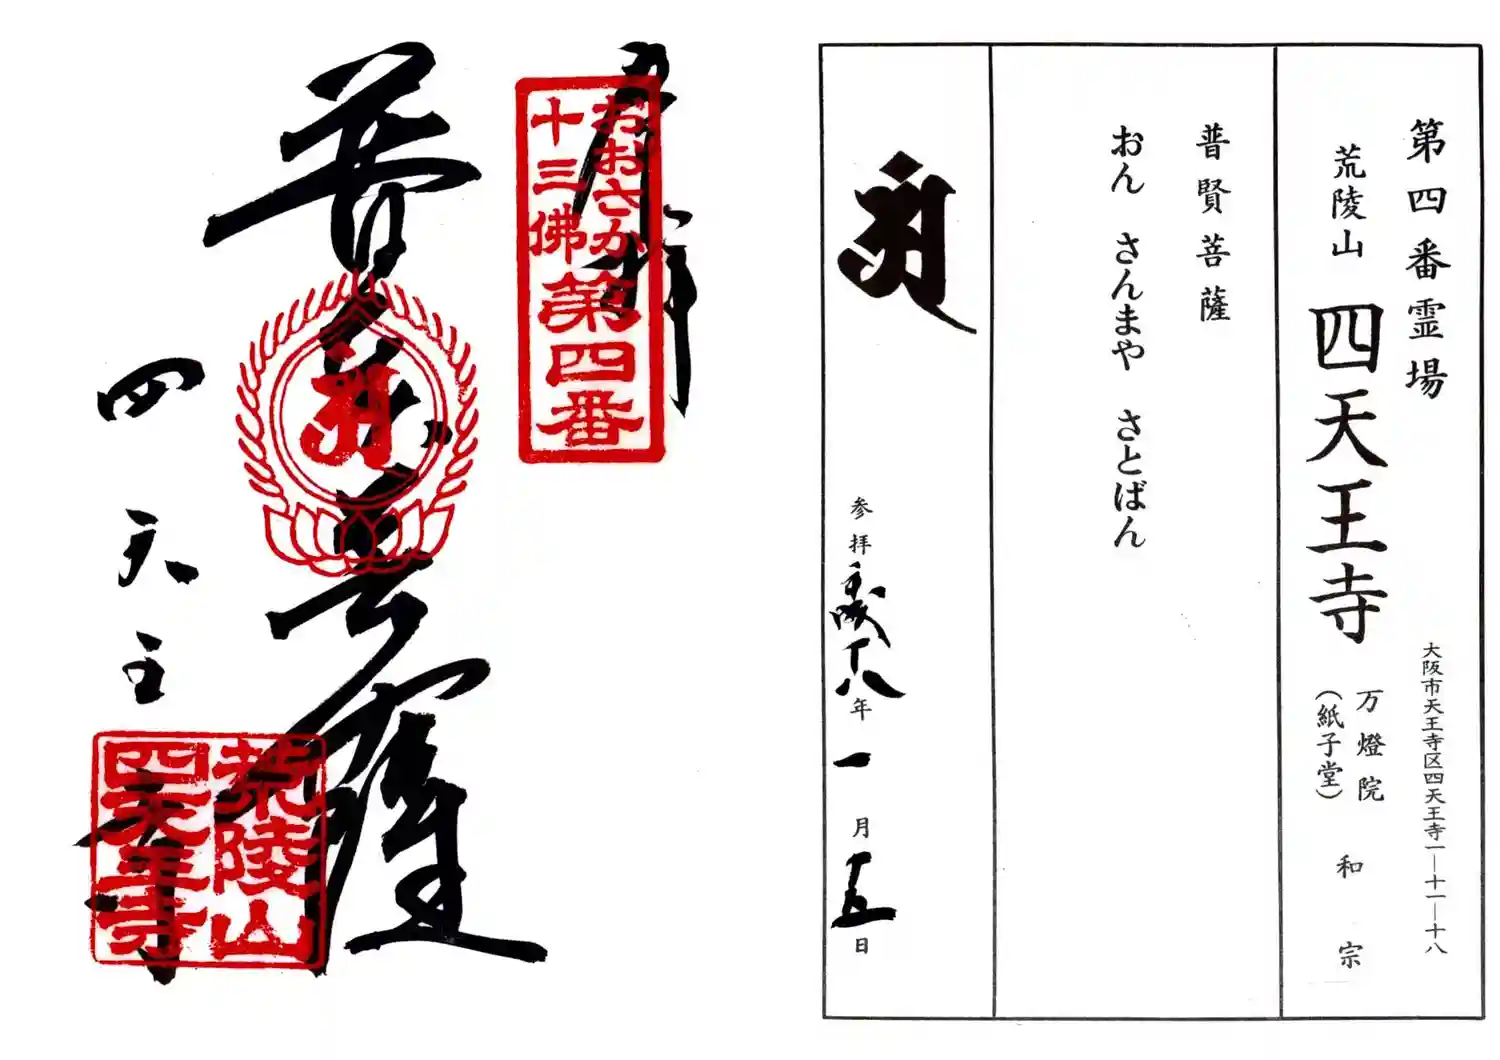 第四番霊場
荒陵山 四天王寺
大阪市天王寺区四天王寺一―十一―十八
万燈院
(紙子堂)
和宗
普賢菩薩
おん さんまや さとばん
参拝 平成十八年 一月十五日
奉拝
おおさか
十三佛
第四番
普賢菩薩
四天王寺
荒陵山
四天王寺